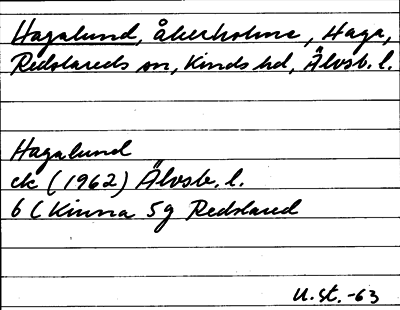 Hagalund, Åkerholms, Haga,
Redslareds sn, Kinds hd, Älvsb. l.
Hagalund
ek (1962) Älvsb. l.
6 C Kinna 5g Redslared
U.St.-63